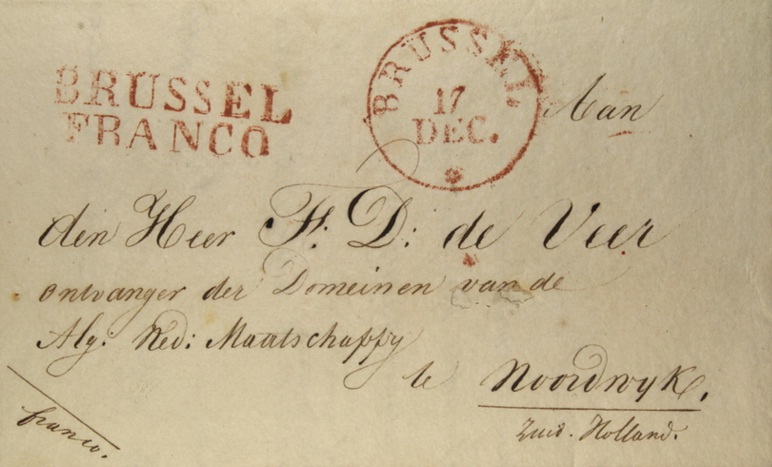 BRUSSEL
FRANCO
BRUSSEL
17
DEC.
Aan
den Heer F: D: de Veer
ontvanger der Domeinen van de
Alg: Ned: Maatschappy
te Noordwyk.
Zuid-Holland.
franco.